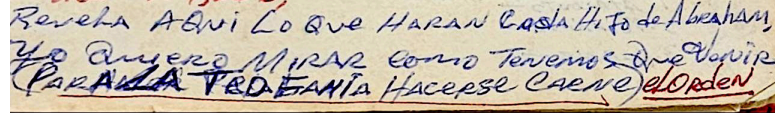 Revela AQui Lo Que HARAN Cada HiJo de Abraham,
Yo Quiero MiRAR Como Tenemos Que Venir
(PARA LA TEOFANÍA HACERSE CARNE) el ORdeN